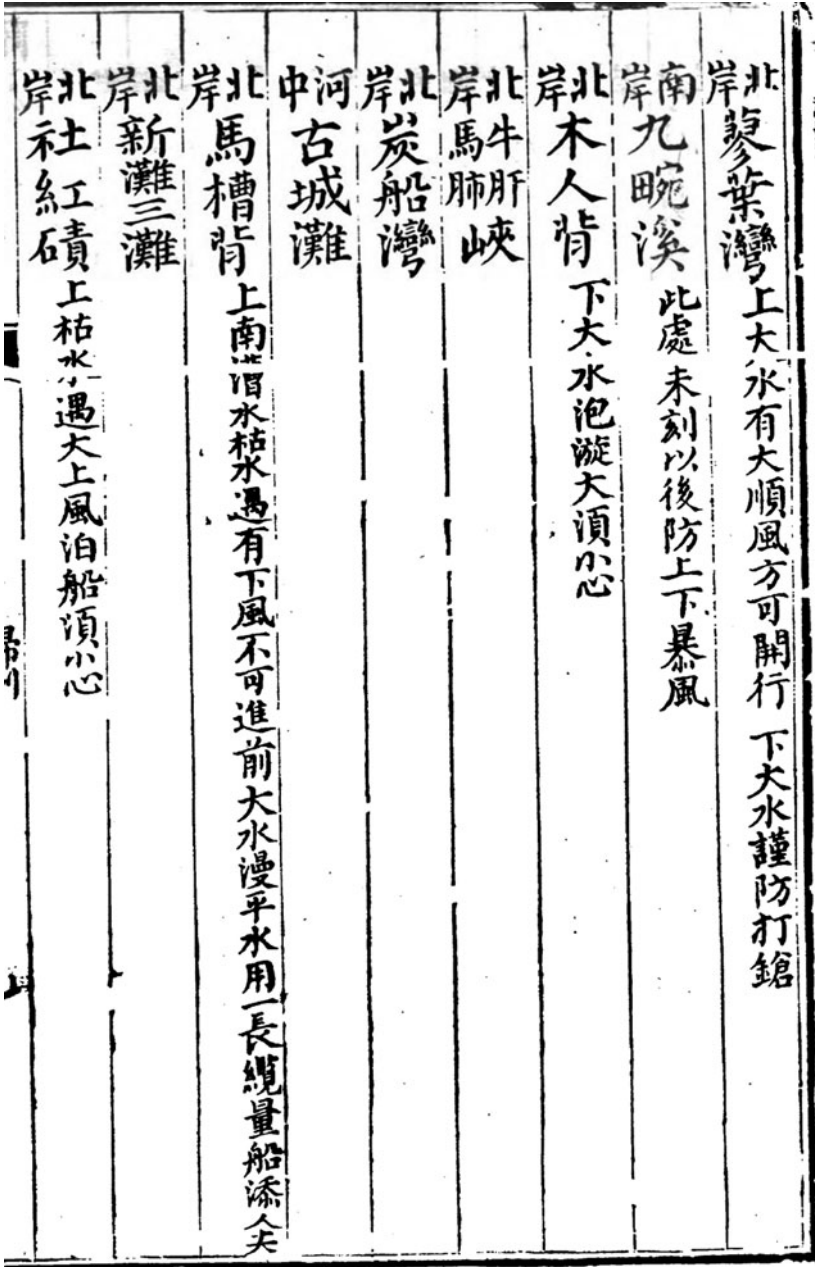 北岸蓼葉灣上大水有大順風方可開行 下大水謹防打鎗
南岸九畹溪 此處未刻以後防上下暴風
北岸木人背 下大水泡漩大須小心
北岸牛肝馬肺峽
北岸炭船灣
河中古城灘
北岸馬槽背 上南漕水枯水遇有下風不可進前大水漫平水用一長纜量船添人夫
北岸新灘三灘
北岸社紅磧上枯水遇大上風泊船須小心